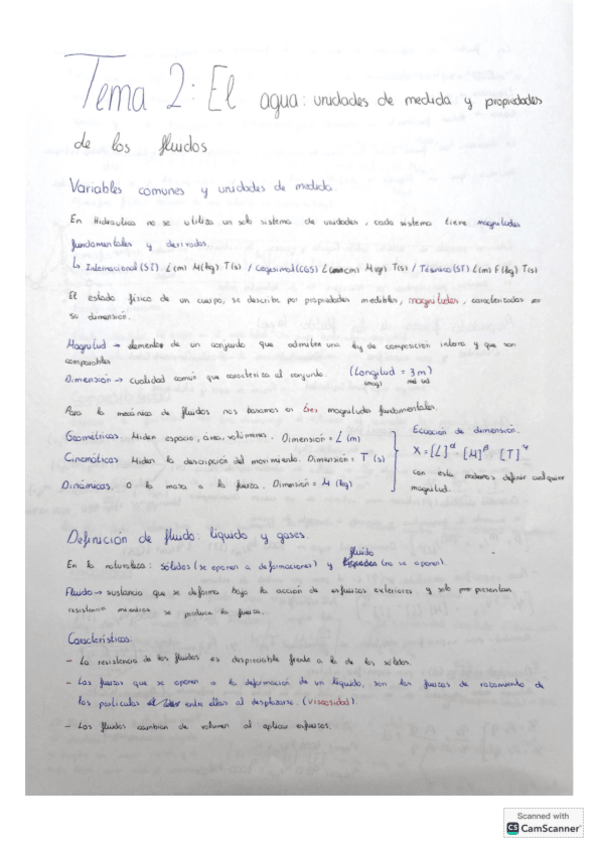 Tema 2: El agua: unidades de medida y propiedades
de los fluidos
Variables comunes y unidades de medida.
En Hidraulica no se utiliza un solo sistema de unidades, cada sistema tiene magnitudes
fundamentales y derivadas.
↳ Internacional (SI) L(m) M(kg) T(s) / Cegesimal (CGS) L(cm) M(gr) T(s) / Técnico (ST) L(m) F(kg) T(s)
El estado físico de un cuerpo, se describe por propiedades medibles, magnitudes, caracterizadas por
su dimensión.
Magnitud → elementos de un conjunto que admiten una ley de composición interna y que son
comparables
Dimensión → cualidad común que caracteriza al conjunto. (Longitud = 3 m)
Para la mecánica de fluidos nos basamos en tres magnitudes fundamentales.
Geométricas. Miden espacio, área, volúmenes. Dimensión = L (m)
Cinemáticas Miden la descripción del movimiento. Dimensión = T (s)
Dinámicas. O la masa o la fuerza. Dimensión = M (kg)
Ecuación de dimensión.
X = [L]^α · [M]^β · [T]^γ
con esta podemos definir cualquier
magnitud.
Definición de fluido: líquido y gases.
En la naturaleza: sólidos (se oponen a deformaciones) y fluido (no se oponen).
Fluido → sustancia que se deforma bajo la acción de esfuerzos exteriores y solo presentan
resistencia mientras se produce la fuerza.
Características:
- La resistencia de los fluidos es despreciable frente a la de los sólidos.
- Las fuerzas que se oponen a la deformación de un líquido, son las fuerzas de rozamiento de
las partículas entre ellas al desplazarse. (viscosidad).
- Los fluidos cambian de volumen al aplicar esfuerzos.
Scanned with
CS CamScanner